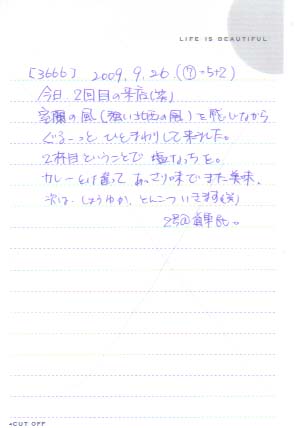 LIFE IS BEAUTIFUL
[3666] 2009.9.26.
今日 2回目の来店(笑)
室蘭の風(強い北西の風)を感じながら
ぐるーっと ひとまわりして来ました。
2杯目ということで 塩なっちを。
カレーとは違って あっさり味でまた美味。
次は しょうゆか、とんこついきます(笑)
CUT OFF